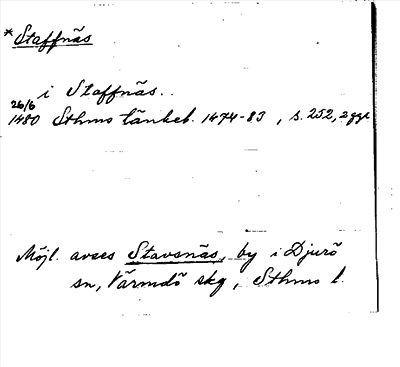 *Staffnäs
i Staffnäs..
26/6
1480 Sthms tänkeb. 1474-83, s. 252, 2 ggr
Möjl. avses Stavsnäs, by i Djurö
sn, Värmdö skg, Sthms l.